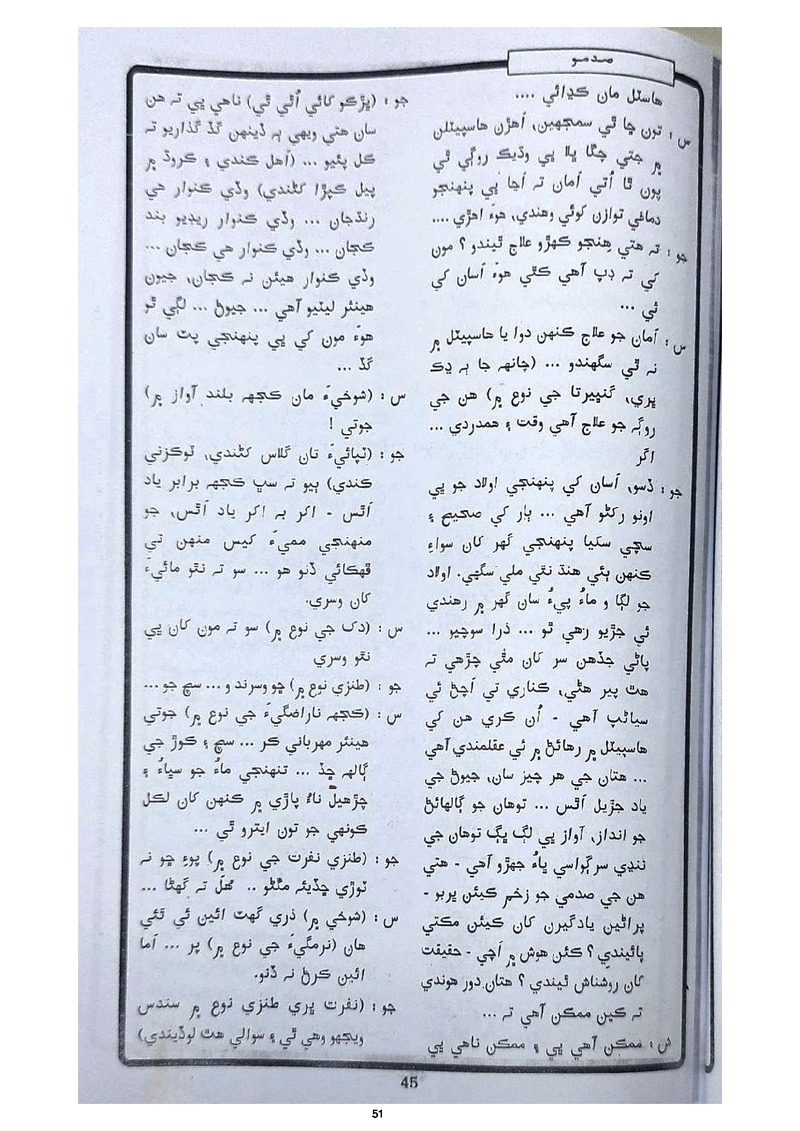 صدمو
هاسٽل مان ڪڍائي ....
س : تون ڇا ٿي سمجهين، اهڙن هاسپيٽلن
۾ جتي چڱا ڀلا پي وڌيڪ روڳي ٿي
پون ٿا اُتي امان ته اڃا پي پنهنجو
دماغي توازن کوئي وهندي، هوءَ اهڙي ....
جو : ته هتي هِنجو ڪهڙو علاج ٿيندو ؟ مون
کي ته ڊپ آهي ڪٿي هوءَ اسان کي
ئي ...
س : امان جو علاج ڪنهن دوا يا هاسپيٽل ۾
نه ٿي سگهندو ... (چانهه جا ٻه ڍڪ
ڀري، گنڀيرتا جي نوع ۾) هن جي
روڳ جو علاج آهي وقت ۽ همدردي ...
اگر
جو : ڏسو، اسان کي پنهنجي اولاد جو پي
اونو رکڻو آهي ... ٻار کي صحيح ۽
سچي سکيا پنهنجي گهر کان سواءِ
ڪنهن ٻئي هنڌ نٿي ملي سگهي. اولاد
جو لڳا و ماءُ پيءُ سان گهر ۾ رهندي
ئي جڙيو رهي ٿو ... ذرا سوچيو ...
پاڻي جڏهن سر کان مٿي چڙهي ته
هٿ پير هڻي، ڪناري تي اچڻ ئي
سياڻپ آهي - اُن ڪري هن کي
هاسپيٽل ۾ رهائڻ ۾ ئي عقلمندي آهي
... هتان جي هر چيز سان، جيوڻ جي
ياد جڙيل اٿس ... توهان جو ڳالهائڻ
جو انداز، آواز پي لڳ ڀڳ توهان جي
ننڍي سرڳواسي ڀاءُ جهڙو آهي - هتي
هن جي صدمي جو زخم ڪيئن ڀربو -
پراڻين يادگيرن کان ڪيئن مڪتي
پائيندي ؟ ڪئن هوش ۾ اچي - حقيقت
کان روشناش ٿيندي ؟ هتان دور هوندي
ته ڪين ممڪن آهي ته ...
س : ممڪن آهي پي ۽ ممڪن ناهي پي
جو : (ڀڙڪو کائي اُٿي ٿي) ناهي پي ته هن
سان هتي ويهي ٻه ڏينهن گڏ گذاريو ته
کل پئيو ... (اُهل ڪندي ۽ ڪروڌ ۾
پيل ڪپڙا کڻندي) وڏي ڪنوار هي
رنڌجان ... وڏي ڪنوار ريڊيو بند
ڪجان ... وڏي ڪنوار هي ڪجان ...
وڏي ڪنوار هيئن نه ڪجان، جيون
هينئر ليٽيو آهي ... جيوڻ ... لڳي ٿو
هوءَ مون کي پي پنهنجي پٽ سان
گڏ ...
س : (شوخيءَ مان ڪجهه بلند آواز ۾)
جوتي !
جو : (ٽپائيءَ تان گلاس کڻندي، ٽوڪزني
ڪندي) ٻيو ته سڀ ڪجهه برابر ياد
اٿس - اکر به اکر ياد اٿس، جو
منهنجي مميءَ کيس منهن تي
ڦهڪائي ڏنو هو ... سو ته نٿو مائيءَ
کان وسري.
س : (دک جي نوع ۾) سو ته مون کان پي
نٿو وسري
جو : (طنزي نوع ۾) ڇو وسرند و ... سچ جو ...
س : (ڪجهه ناراضگيءَ جي نوع ۾) جوتي
هينئر مهرباني ڪر ... سچ ۽ ڪوڙ جي
ڳالهه ڇڏ ... تنهنجي ماءُ جو سڀاءُ ۽
چڙهيل ناڪُ پاڙي ۾ ڪنهن کان لڪل
ڪونهي جو تون ايترو ٿي ...
جو : (طنزي نفرت جي نوع ۾) پوءِ ڇو نه
ٽوڙي ڇڏيئه مڱڻو .. ھُل ته گهڻا ...
س : (شوخي ۾) ذري گهٽ ائين ئي ٿئي
هان (نرمگيءَ جي نوع ۾) پر ... اما
ائين ڪرڻ نه ڏنو.
جو : (نفرت ڀري طنزي نوع ۾ سندس
ويجهو وهي ٿي ۽ سوالي هٿ لوڏيندي)
45
51